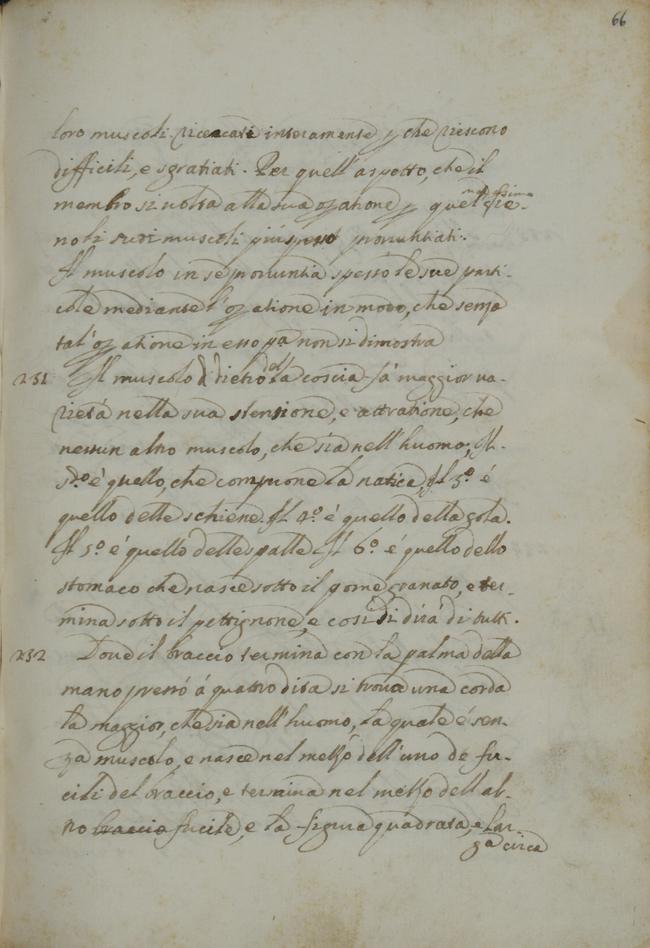 66
loro muscoli ricercati interamente p che riescono
difficili, e sgratiati. Per quell'aspetto, che il
membro si volta alla sua op.atione p quel
noti suoi muscoli più spesso pronuntiati.
Il muscolo in se pronuntia spesso le sue parti-
cole mediante l'op.atione in modo, che senza
tal' op.atione in esso p.a non si dimostra
231 Il muscolo dietro della coscia fà maggior va-
rietà nella sua stensione, e attratione, che
nessun altro muscolo, che sia nell'huomo; Il
s.do è quello, che compone la natica, Il 3.º è
quello delle schiene. Il 4.º è quello della gola.
Il 5.º è quello delle spalle. Il 6.º è quello dello
stomaco che nasce sotto il pome granato, e ter-
mina sotto il pettignone, e così si dirà di tutti.
232 Dove il braccio termina con la palma della
mano presso à quattro dita si trova una corda
la maggior, che sia nell'huomo, la quale è sen-
za muscolo, e nasce nel mezzo dell'uno de fu-
cili del braccio, e termina nel mezzo dell'al-
tro braccio fucile, e la figura quadrata, e lar-
ga circa